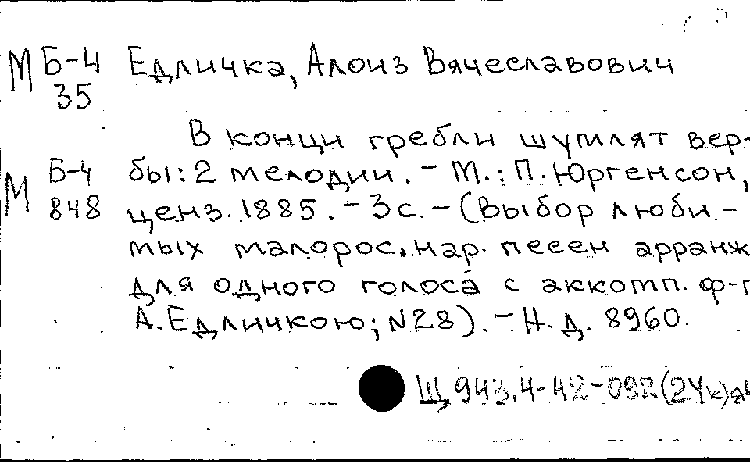 М Б-4 Едличка, Алоиз Вячеславович
35
В конци гребли шумлят вер-
М Б-4 бы: 2 мелодии. - М.: П. Юргенсон,
848 ценз. 1885. - 3 с. - (Выбор люби-
мых малорос. нар. песен арранж
для одного голоса с аккомп. ф-п
А. Едличкою; N28). - Н. д. 8960.
Щ 943.4-42-09Я(2Ук)я4